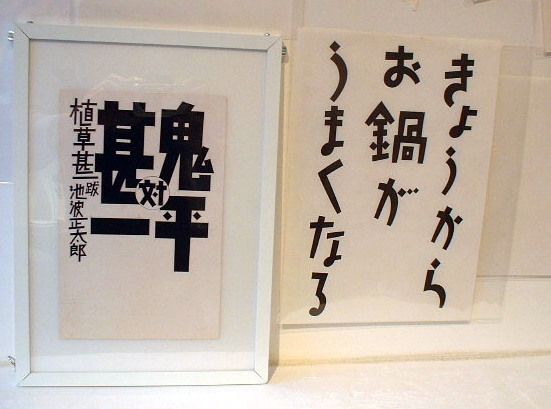 きょうから
お鍋が
うまくなる
鬼平
対
甚一
植草甚一
跋
池波正太郎